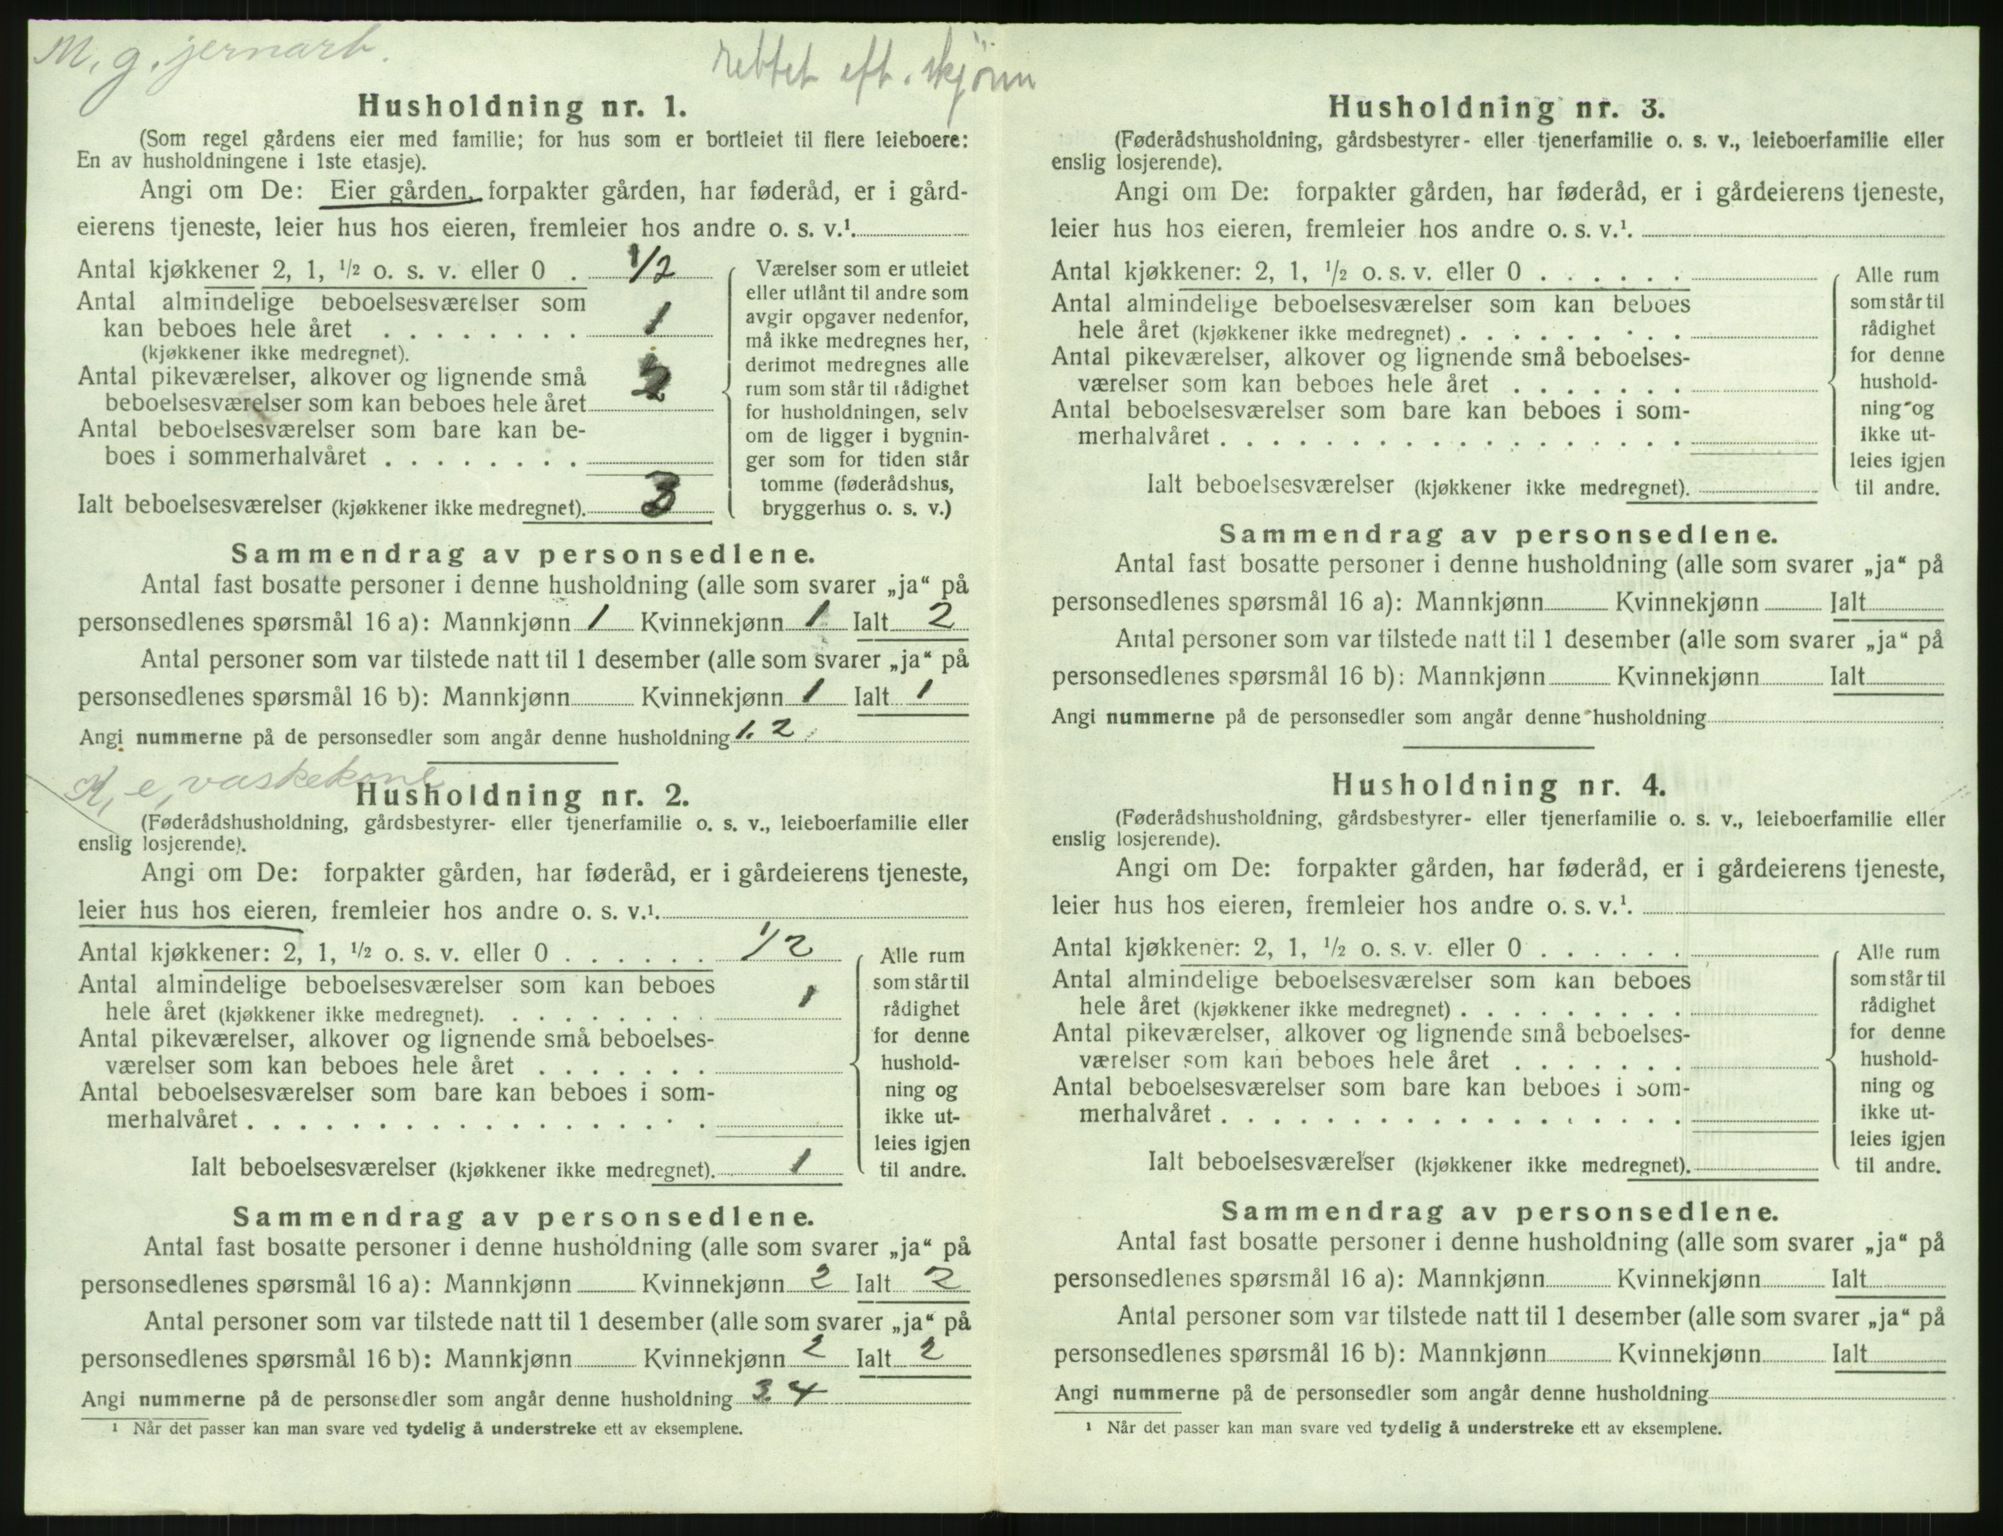 M. g. jernarb.
rettet eft. skjønn
Husholdning nr. 1.
(Som regel gårdens eier med familie; for hus som er bortleiet til flere leieboere:
En av husholdningene i 1ste etasje).
Angi om De: Eier gården, forpakter gården, har føderåd, er i gård-
eierens tjeneste, leier hus hos eieren, fremleier hos andre o. s. v.¹
Antal kjøkkener 2, 1, ½ o. s. v. eller 0 . 1/2
Antal almindelige beboelsesværelser som
kan beboes hele året . . . . . . . . 1
(kjøkkener ikke medregnet).
Antal pikeværelser, alkover og lignende små
beboelsesværelser som kan beboes hele året 2
Antal beboelsesværelser som bare kan be-
boes i sommerhalvåret . . . . . . .
Ialt beboelsesværelser (kjøkkener ikke medregnet). 3
Værelser som er utleiet
eller utlånt til andre som
avgir opgaver nedenfor,
må ikke medregnes her,
derimot medregnes alle
rum som står til rådighet
for husholdningen, selv
om de ligger i bygnin-
ger som for tiden står
tomme (føderådshus,
bryggerhus o. s. v.)
Sammendrag av personsedlene.
Antal fast bosatte personer i denne husholdning (alle som svarer „ja“ på
personsedlenes spørsmål 16 a): Mannkjønn 1 Kvinnekjønn 1 Ialt 2
Antal personer som var tilstede natt til 1 desember (alle som svarer „ja“ på
personsedlenes spørsmål 16 b): Mannkjønn Kvinnekjønn 1 Ialt 1
Angi nummerne på de personsedler som angår denne husholdning 1. 2
K. e. vaskekone
Husholdning nr. 2.
(Føderådshusholdning, gårdsbestyrer- eller tjenerfamilie o. s. v., leieboerfamilie eller
enslig losjerende).
Angi om De: forpakter gården, har føderåd, er i gårdeierens tjeneste,
leier hus hos eieren, fremleier hos andre o. s. v.¹
Antal kjøkkener: 2, 1, ½ o. s. v. eller 0 . . . . . . 1/2
Antal almindelige beboelsesværelser som kan beboes
hele året (kjøkkener ikke medregnet). . . . . . . . . 1
Antal pikeværelser, alkover og lignende små beboelses-
værelser som kan beboes hele året . . . . . . .
Antal beboelsesværelser som bare kan beboes i som-
merhalvåret . . . . . . . . . . . . . . . . . .
Ialt beboelsesværelser (kjøkkener ikke medregnet). 1
Alle rum
som står til
rådighet
for denne
hushold-
ning og
ikke ut-
leies igjen
til andre.
Sammendrag av personsedlene.
Antal fast bosatte personer i denne husholdning (alle som svarer „ja“ på
personsedlenes spørsmål 16 a): Mannkjønn Kvinnekjønn 2 Ialt 2
Antal personer som var tilstede natt til 1 desember (alle som svarer „ja“ på
personsedlenes spørsmål 16 b): Mannkjønn Kvinnekjønn 2 Ialt 2
Angi nummerne på de personsedler som angår denne husholdning 3. 4
¹ Når det passer kan man svare ved tydelig å understreke ett av eksemplene.
Husholdning nr. 3.
(Føderådshusholdning, gårdsbestyrer- eller tjenerfamilie o. s. v., leieboerfamilie eller
enslig losjerende).
Angi om De: forpakter gården, har føderåd, er i gårdeierens tjeneste,
leier hus hos eieren, fremleier hos andre o. s. v.¹
Antal kjøkkener: 2, 1, ½ o. s. v. eller 0 . . . . . .
Antal almindelige beboelsesværelser som kan beboes
hele året (kjøkkener ikke medregnet) . . . . . . . . .
Antal pikeværelser, alkover og lignende små beboelses-
værelser som kan beboes hele året . . . . . . .
Antal beboelsesværelser som bare kan beboes i som-
merhalvåret . . . . . . . . . . . . . . . . . .
Ialt beboelsesværelser (kjøkkener ikke medregnet).
Alle rum
som står til
rådighet
for denne
hushold-
ning og
ikke ut-
leies igjen
til andre.
Sammendrag av personsedlene.
Antal fast bosatte personer i denne husholdning (alle som svarer „ja“ på
personsedlenes spørsmål 16 a): Mannkjønn Kvinnekjønn Ialt
Antal personer som var tilstede natt til 1 desember (alle som svarer „ja“ på
personsedlenes spørsmål 16 b): Mannkjønn Kvinnekjønn Ialt
Angi nummerne på de personsedler som angår denne husholdning
Husholdning nr. 4.
(Føderådshusholdning, gårdsbestyrer- eller tjenerfamilie o. s. v., leieboerfamilie eller
enslig losjerende).
Angi om De: forpakter gården, har føderåd, er i gårdeierens tjeneste,
leier hus hos eieren, fremleier hos andre o. s. v.¹
Antal kjøkkener: 2, 1, ½ o. s. v. eller 0 . . . . . .
Antal almindelige beboelsesværelser som kan beboes
hele året (kjøkkener ikke medregnet) . . . . . . . . .
Antal pikeværelser, alkover og lignende små beboelses-
værelser som kan beboes hele året . . . . . . .
Antal beboelsesværelser som bare kan beboes i som-
merhalvåret . . . . . . . . . . . . . . . . . .
Ialt beboelsesværelser (kjøkkener ikke medregnet).
Alle rum
som står til
rådighet
for denne
hushold-
ning og
ikke ut-
leies igjen
til andre.
Sammendrag av personsedlene.
Antal fast bosatte personer i denne husholdning (alle som svarer „ja“ på
personsedlenes spørsmål 16 a): Mannkjønn Kvinnekjønn Ialt
Antal personer som var tilstede natt til 1 desember (alle som svarer „ja“ på
personsedlenes spørsmål 16 b): Mannkjønn Kvinnekjønn Ialt
Angi nummerne på de personsedler som angår denne husholdning
¹ Når det passer kan man svare ved tydelig å understreke ett av eksemplene.